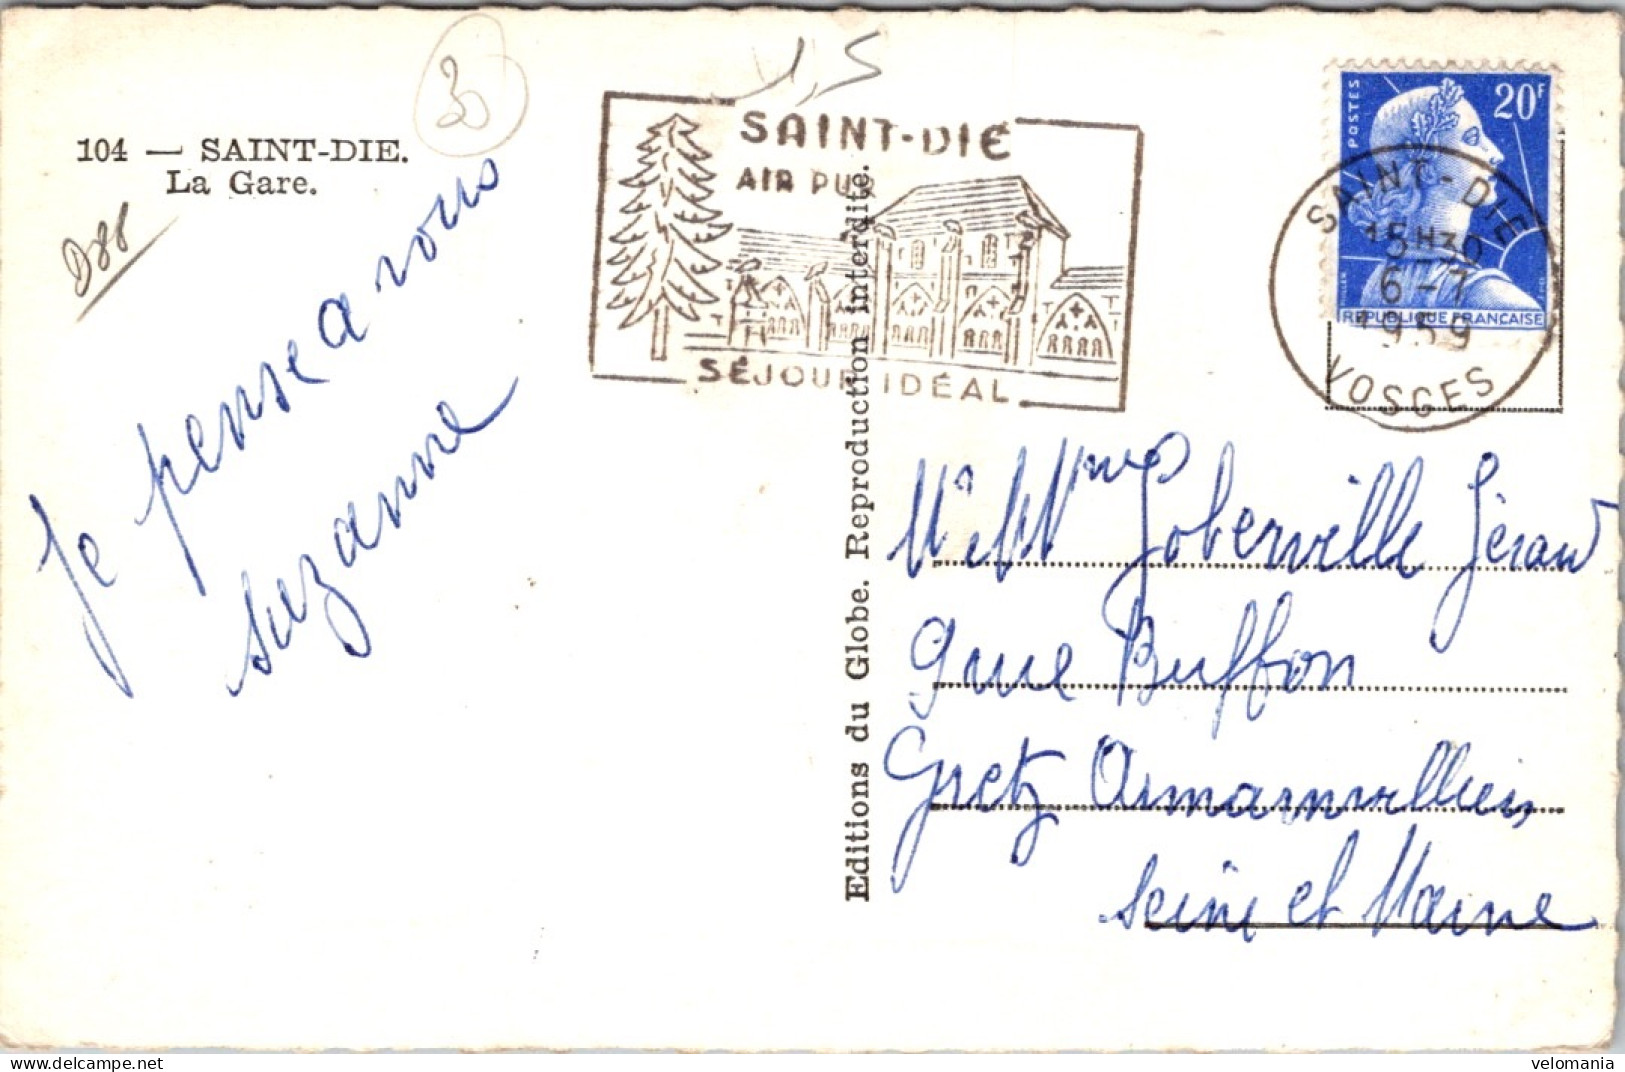 104 — SAINT-DIE.
La Gare.
30
1,5
D88
Je pense a vous
suzanne
SAINT-DIÉ
AIR PUR
SÉJOUR IDÉAL
Editions du Globe. Reproduction interdite.
POSTES
20F
REPUBLIQUE FRANÇAISE
SAINT-DIE
15H30
6-7
1959
VOSGES
Mr et Mme Joberville Gérard
9 rue Buffon
Gretz Armainvilliers
Seine et Marne
velomania